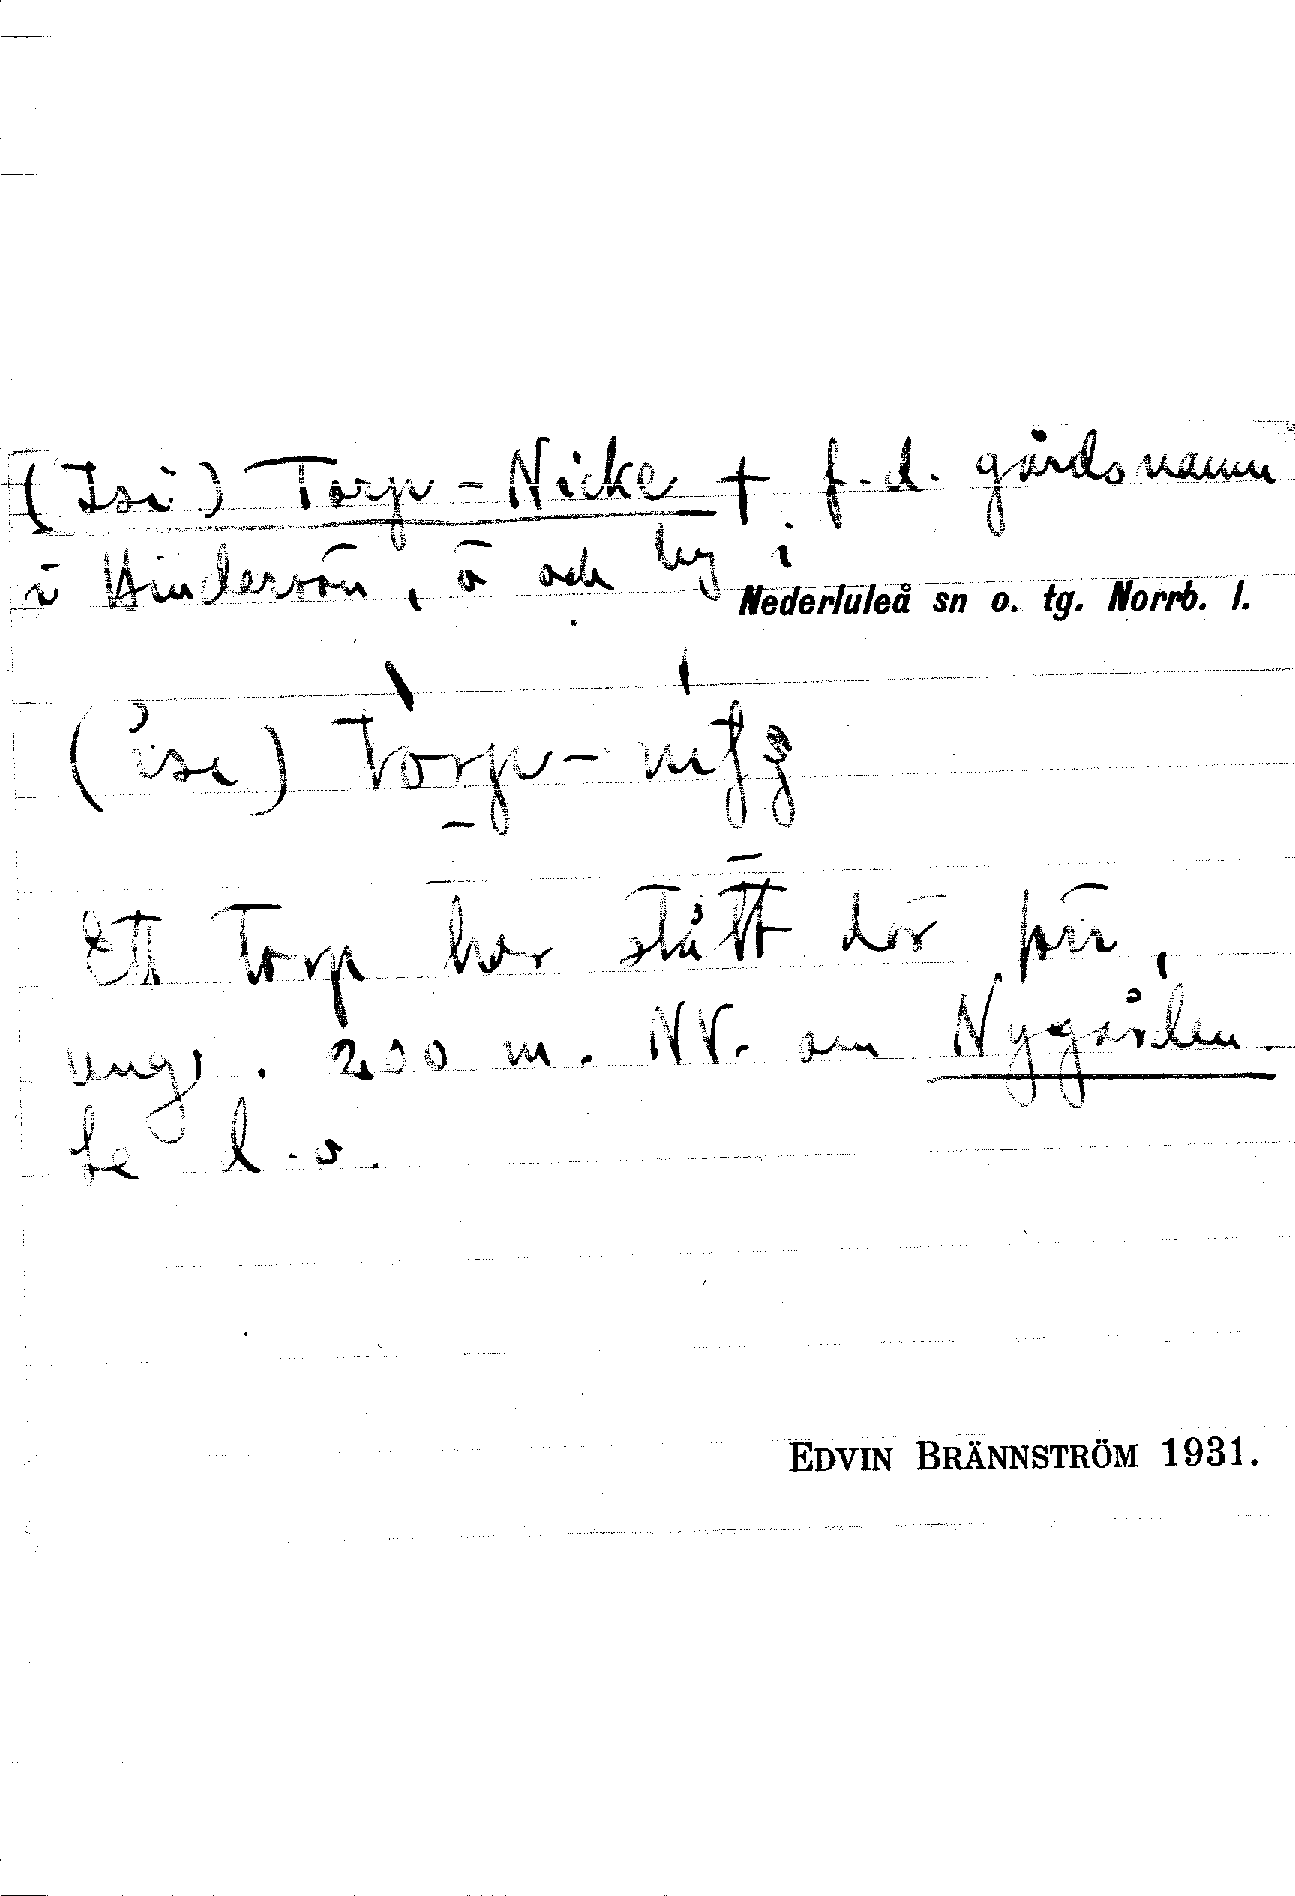 (Isi) Torp-Nicke † f.d. gårdsnamn
i Hindersön, ö och by i
Nederluleå sn o. tg. Norrb. l.
(ise) torp-
Ett torp har stått där förr,
ung. 200 m. NV. om Nygården
se d.o.
EDVIN BRÄNNSTRÖM 1931.